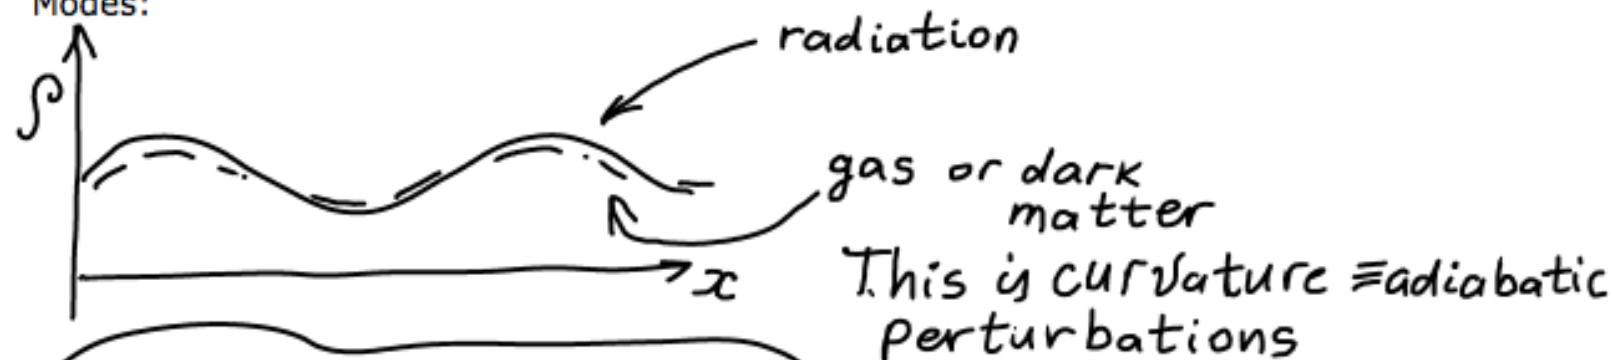 Modes:
radiation
ρ
gas or dark
matter
x
This is curvature ≡adiabatic
perturbations